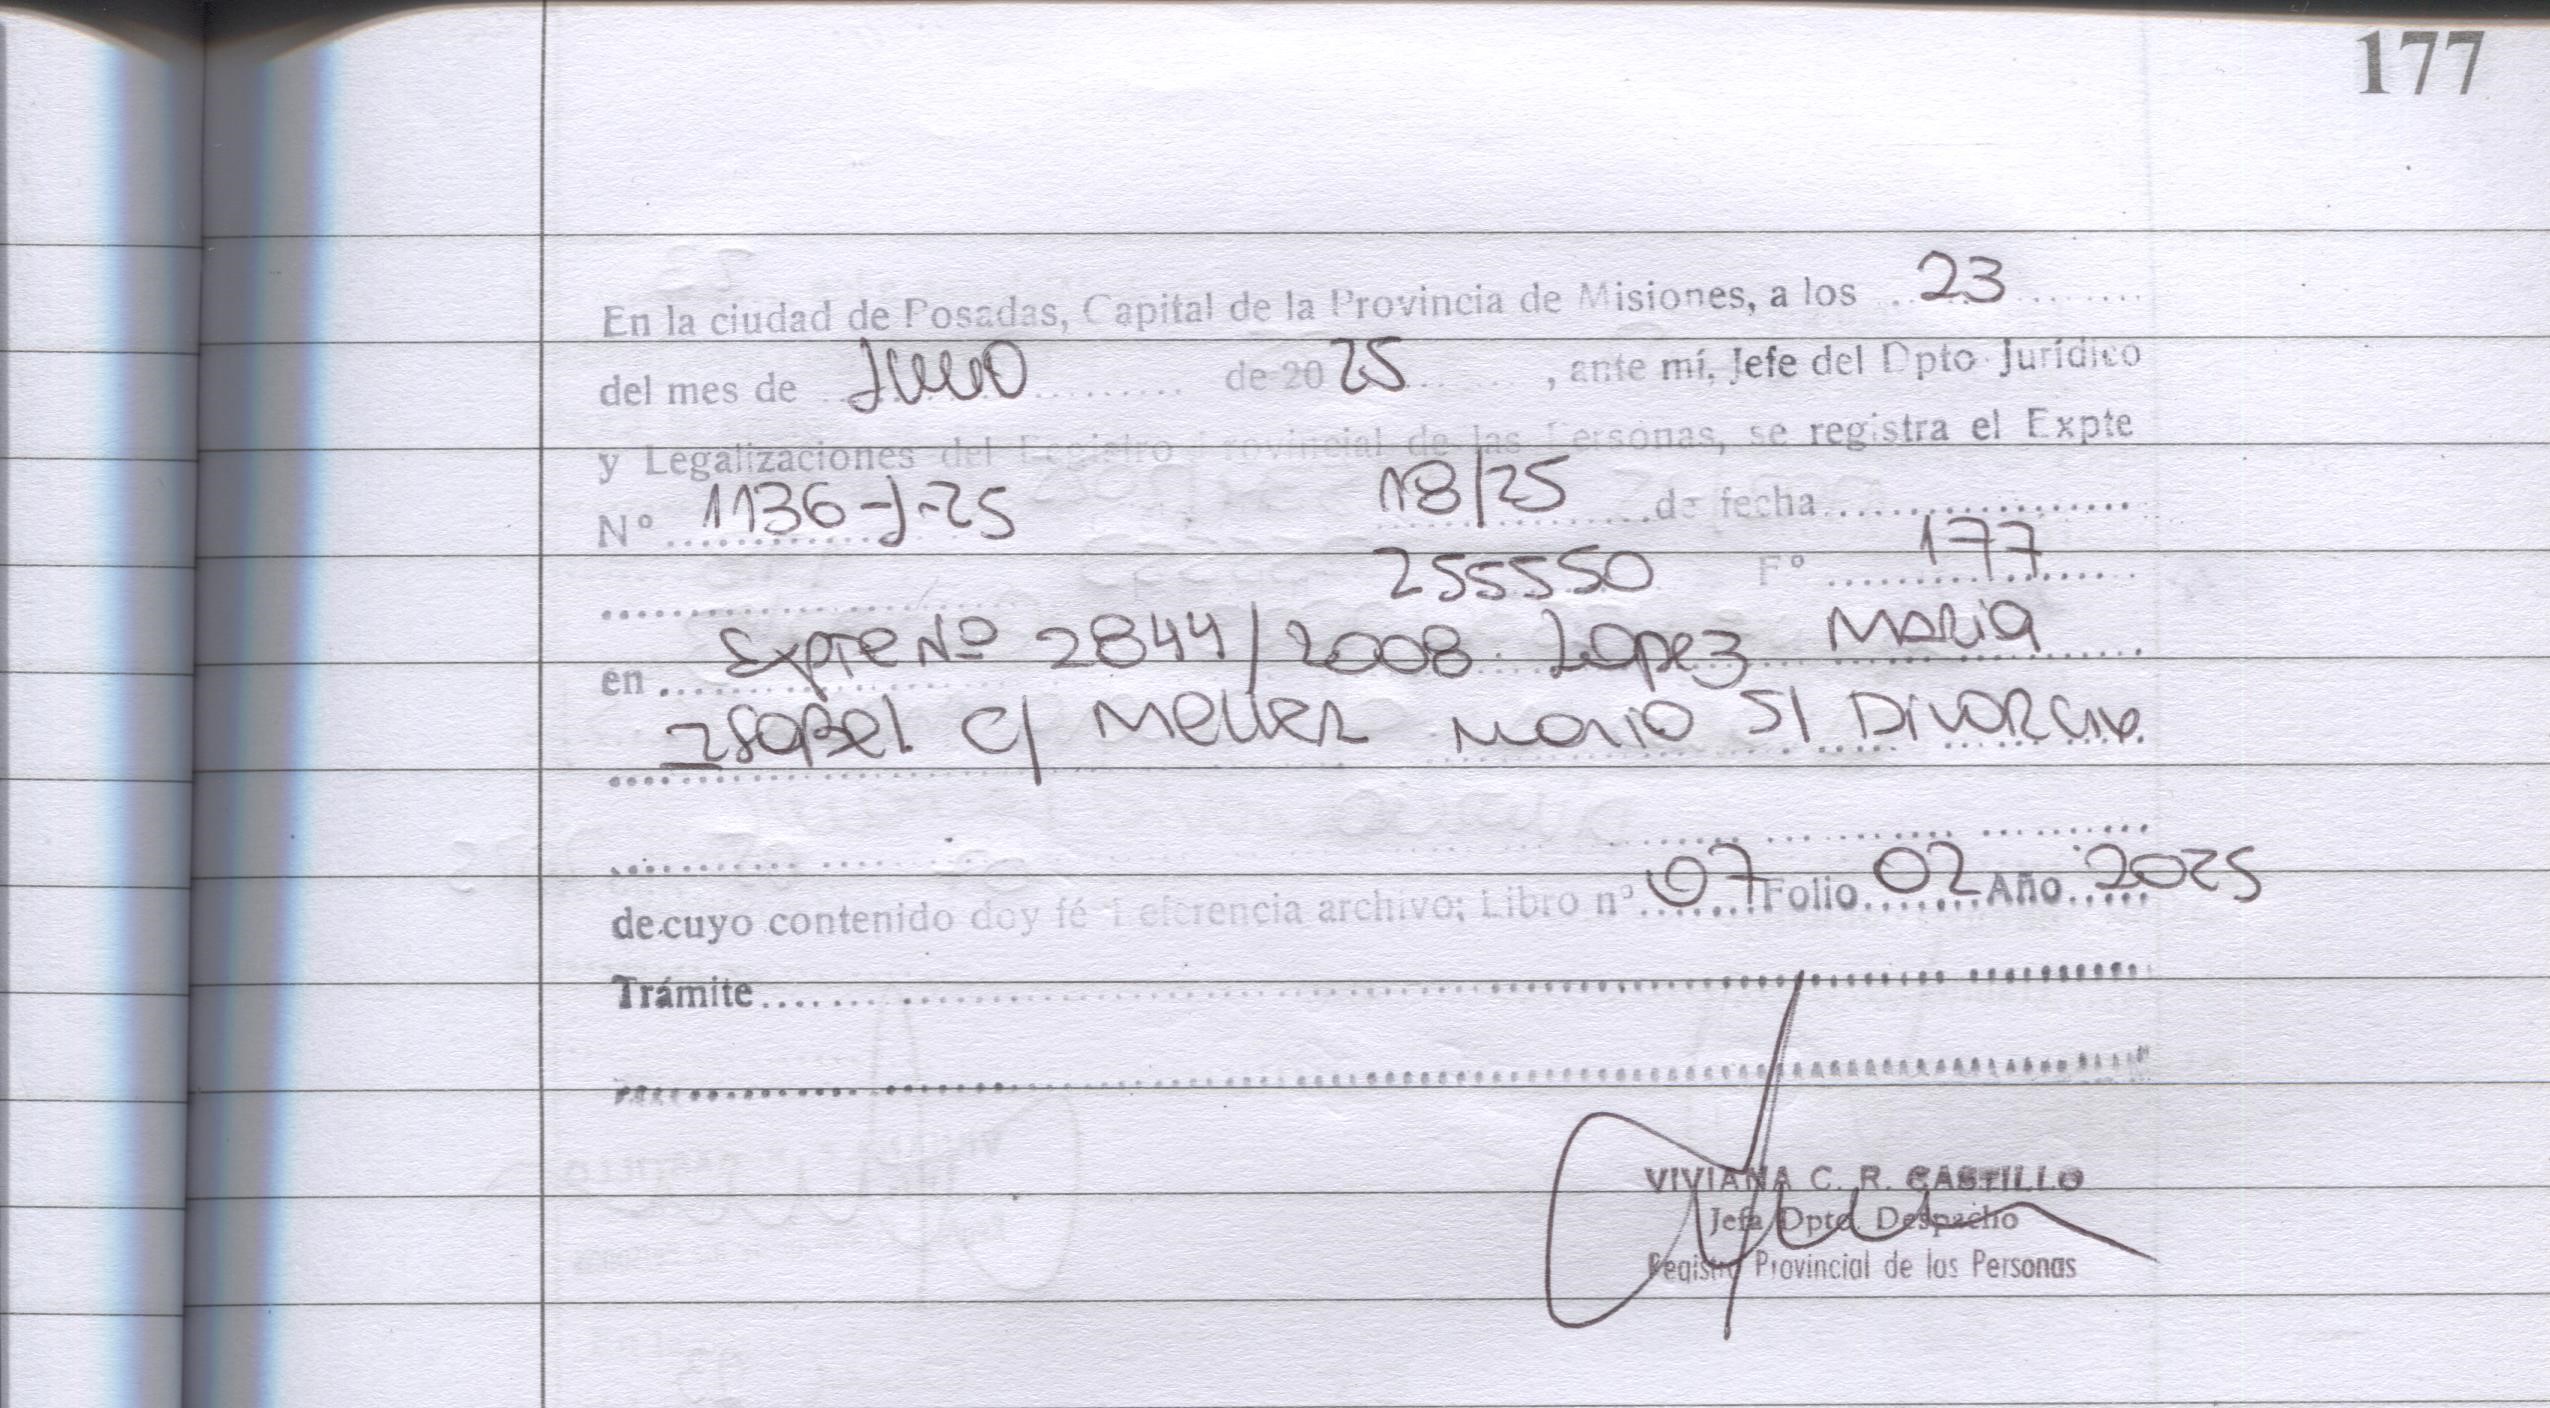 177
En la ciudad de Posadas, Capital de la Provincia de Misiones, a los 23
del mes de de 20 25 , ante mí, Jefe del Dpto Jurídico
y Legalizaciones del Registro Provincial de las Personas, se registra el Expte
Nº 1136-J-25 118/25 de fecha
255550 Fº 177
en Expte Nº 2844/2008 Lopez Maria
Isabel c/ Meller Mario S/ Divorcio
de cuyo contenido doy fé Referencia archivo: Libro nº 07 Folio 02 Año 2025
Trámite
VIVIANA C. R. CASTILLO
Jefa Dpto Despacho
Registro Provincial de las Personas